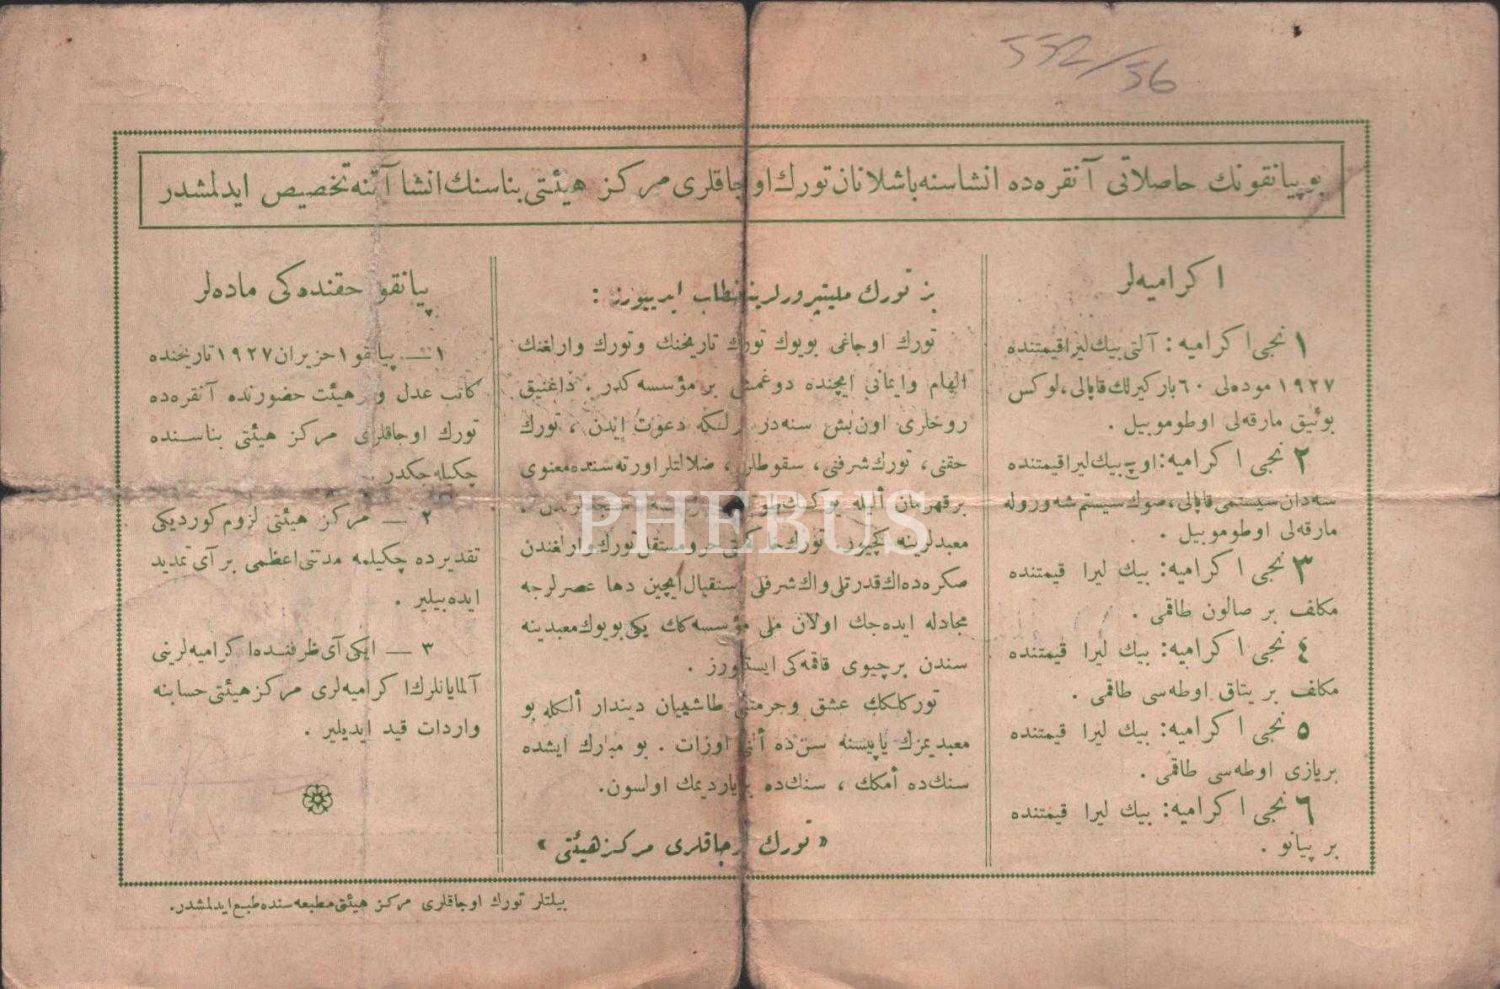 552/56
بو پیانقونك حاصلاتی آنقره‌ده انشاسنه باشلانان تورك اوجاقلری مركز هیئتی بناسنك انشاآتنه تخصیص ایدلمشدر
اكرامیه‌لر
۱ نجی اكرامیه: آلتی بیك لیرا قیمتنده
۱۹۲۷ موده‌لی ۶۰ بار كیرلك قاپالی، لوكس
بوئیق مارقه‌لی اوطوموبیل .
۲ نجی اكرامیه: اوچ بیك لیرا قیمتنده
سه‌دان سیستمی قاپالی، صوك سیستم شه‌وروله
مارقه‌لی اوطوموبیل .
۳ نجی اكرامیه: بیك لیرا قیمتنده
مكلف بر صالون طاقمی .
٤ نجی اكرامیه: بیك لیرا قیمتنده
مكلف بر یتاق اوطه‌سی طاقمی .
۵ نجی اكرامیه: بیك لیرا قیمتنده
بر یازی اوطه‌سی طاقمی .
٦ نجی اكرامیه: بیك لیرا قیمتنده
بر پیانو .
بز تورك ملیتپرورلرینه خطاب ایدییورز :
تورك اوجاغی بویوك تورك تاریخنك وتورك وارلغنك
الهام وایمانی ایچنده دوغمش بر مؤسسه‌كدر . داغنیق
روحلری اون بش سنه‌در برلكه دعوت ایدن ، تورك
حقنی، تورك شرفنی، سقوطلر، ضلالتلر اورته‌سنده معنوی
بر قهرمان ألیله
معبدلرینه كچیور. تورك ومستقل تورك وارلغندن
صكره‌ده اك قدرتلی واك شرفلی استقبال ایچین دها عصرلرجه
مجادله ایده‌جك اولان ملی مؤسسه‌كك یكی بویوك معبدینه
سندن بر چیوی قاقمه‌كی ایستیورز .
توركلكك عشق وحرمتنی طاشییان دیندار ألكله بو
معبدیمزك یاپیسنه سن‌ده ألنی اوزات . بو مبارك ایشده
سنك‌ده أمكك ، سنك‌ده بر یاردیمك اولسون.
« تورك اوجاقلری مركز هیئتی »
پیانقو حقنده‌كی ماده‌لر
۱ — پیانقو ۱ حزیران ۱۹۲۷ تاریخنده
كاتب عدل و هیئت حضورنده آنقره‌ده
تورك اوجاقلری مركز هیئتی بناسنده
چكیله‌جكدر .
۲ — مركز هیئتی لزوم كوردیكی
تقدیرده چكیلمه مدتنی اعظمی بر آی تمدید
ایده‌بیلیر .
۳ — ایكی آی ظرفنده اكرامیه‌لرینی
آلمایانلرك اكرامیه‌لری مركز هیئتی حسابنه
واردات قید ایدیلیر .
بیلتلر تورك اوجاقلری مركز هیئتی مطبعه‌سنده طبع ایدلمشدر.
PHEBUS